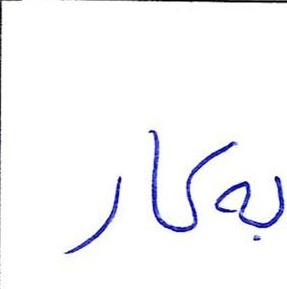 به کار